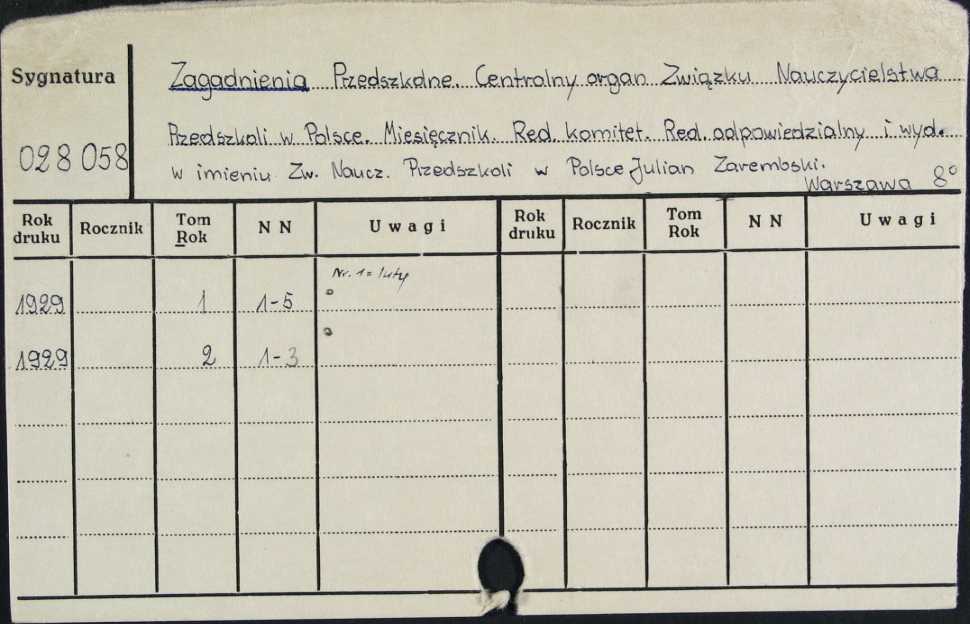 Sygnatura
Zagadnienia Przedszkolne. Centralny organ Związku Nauczycielstwa
028 058
Przedszkoli w Polsce. Miesięcznik. Red. komitet. Red. odpowiedzialny i wyd.
w imieniu Zw. Naucz. Przedszkoli w Polsce Julian Zarembski.
Warszawa 8°
Rok druku Rocznik Tom Rok N N Uwagi Rok druku Rocznik Tom Rok N N Uwagi
Nr. 1 = luty
1929 1 1-5
1929 2 1-3